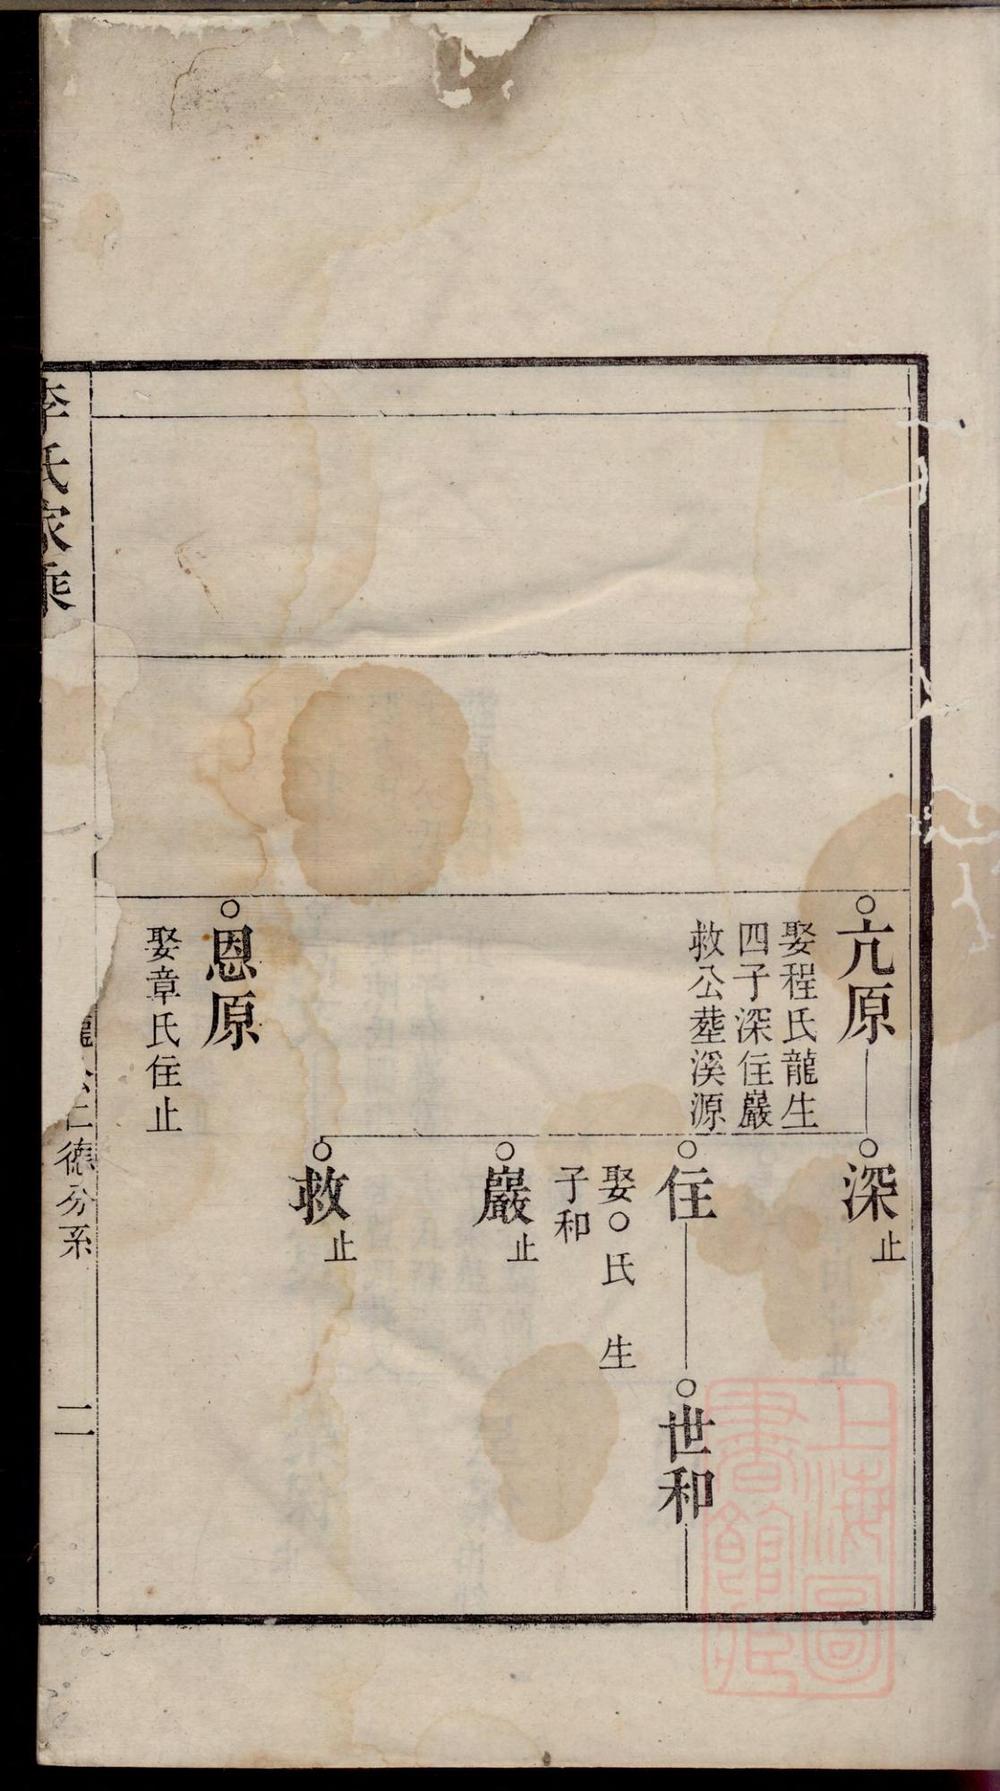 亢原
娶程氏龍生
四子深住巖
救公塟溪源
深止
住
娶○氏　生
子和
世和
巖止
救止
恩原
娶章氏住止
李氏家乘
仁德分系
二
上海圖
書館藏